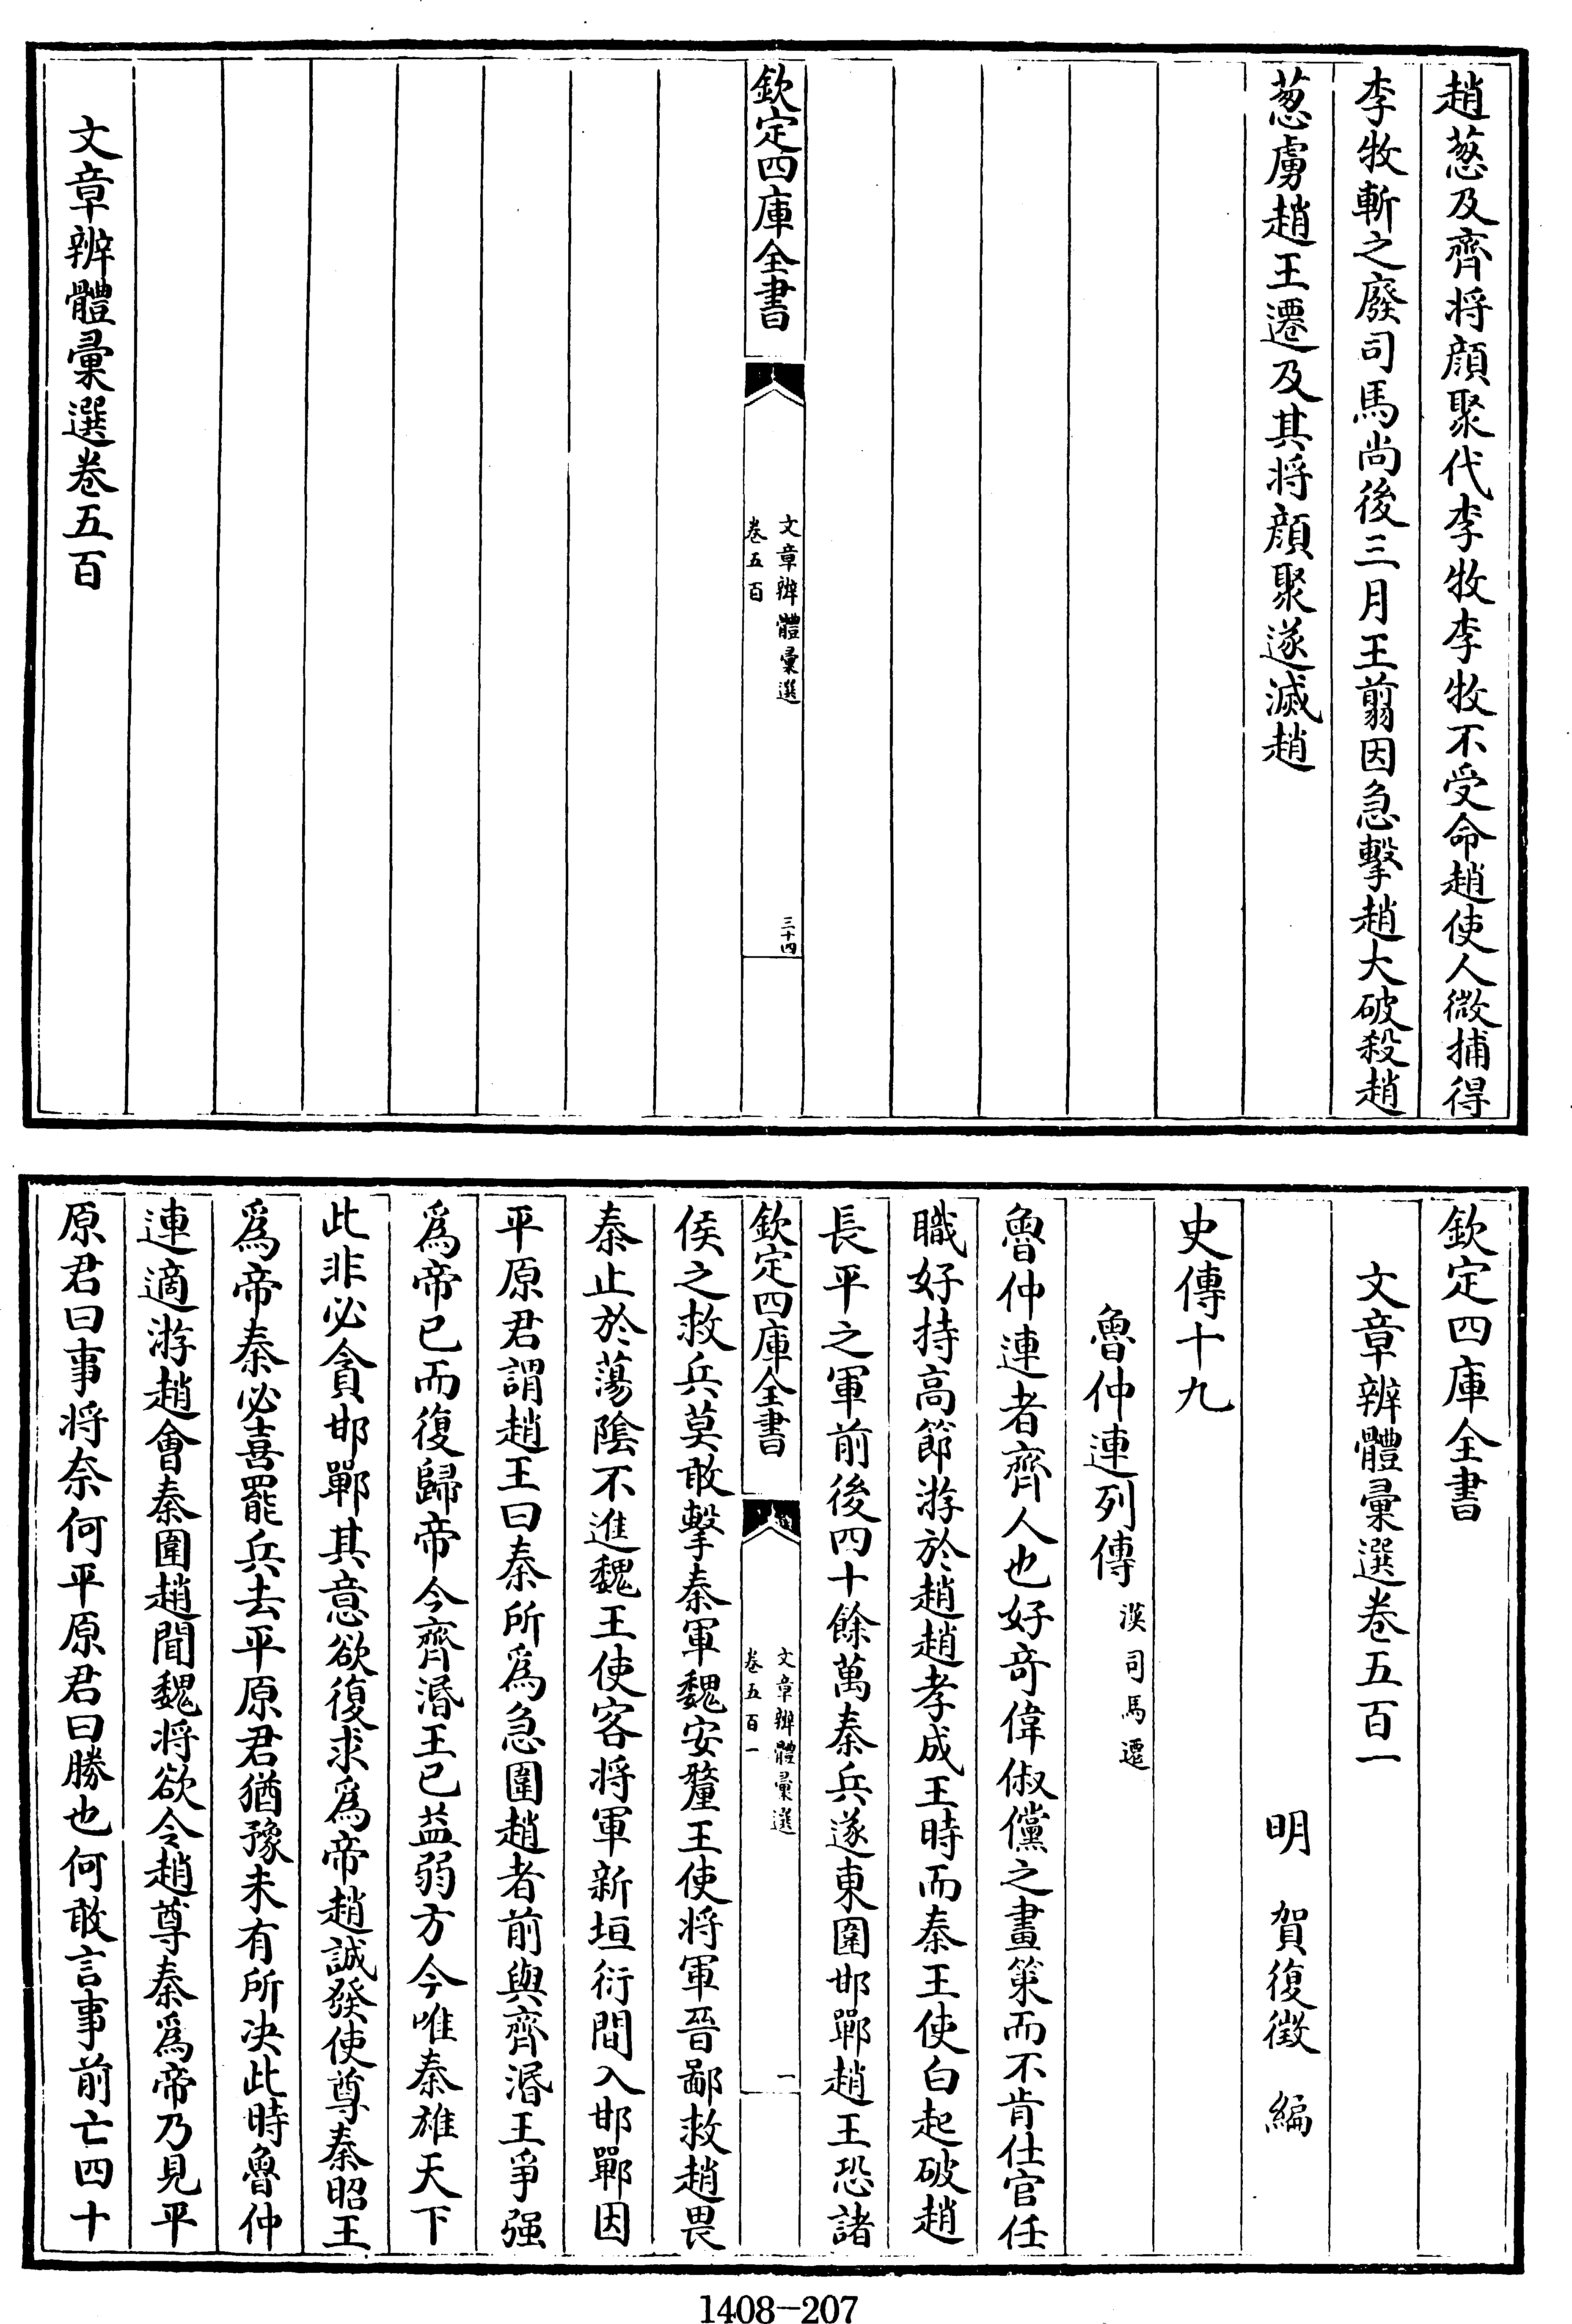 趙葱及齊将顔聚代李牧李牧不受命趙使人微捕得
李牧斬之廢司馬尚後三月王翦因急擊趙大破殺趙
葱虜趙王遷及其将顔聚遂滅趙
欽定四庫全書
文章辨體彙選
卷五百
三十四
文章辨體彙選卷五百
欽定四庫全書
文章辨體彙選卷五百一
明 賀復徵 編
史傳十九
魯仲連列傳 漢司馬遷
魯仲連者齊人也好奇偉俶儻之畫策而不肯仕官任
職好持高節游於趙趙孝成王時而秦王使白起破趙
長平之軍前後四十餘萬秦兵遂東圍邯鄲趙王恐諸
欽定四庫全書
文章辨體彙選
卷五百一
一
侯之救兵莫敢擊秦軍魏安釐王使将軍晉鄙救趙畏
秦止於蕩陰不進魏王使客将軍新垣衍間入邯鄲因
平原君謂趙王曰秦所爲急圍趙者前與齊湣王爭强
爲帝已而復歸帝今齊湣王已益弱方今唯秦雄天下
此非必貪邯鄲其意欲復求爲帝趙誠發使尊秦昭王
爲帝秦必喜罷兵去平原君猶豫未有所决此時魯仲
連適游趙會秦圍趙聞魏将欲令趙尊秦爲帝乃見平
原君曰事将奈何平原君曰勝也何敢言事前亡四十
1408-207